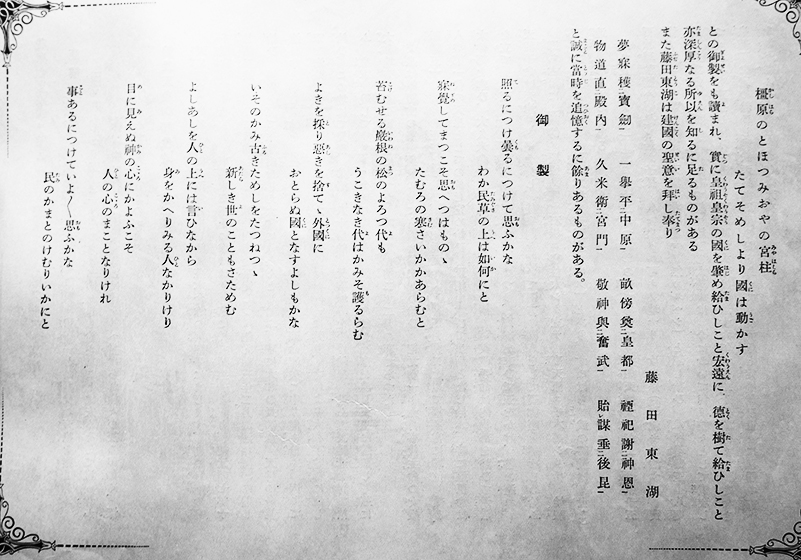 橿原のとほつみおやの宮柱
たてそめしより國は動かす
との御製をも讀まれ、實に皇祖皇宗の國を肇め給ひしこと宏遠に、德を樹て給ひしこと
亦深厚なる所以を知るに足るものがある
また藤田東湖は建國の聖意を拜し奉り
藤田東湖
夢寐穫寶劍 一擧平中原 畝傍奠皇都 禋祀謝神恩
物道直殿内 久米衛宮門 敬神與奮武 貽謀垂後昆
と誠に當時を追憶するに餘りあるものがある。
御製
照るにつけ曇るにつけて思ふかな
わか民草の上は如何にと
寐覺してまつこそ思へつはものゝ
たむろの寒さいかかあらむと
苔むせる巖根の松のよろつ代も
うこきなき代はかみそ護るらむ
よきを採り惡きを捨てゝ外國に
おとらぬ國となすよしもかな
いそのかみ古きためしをたつねつゝ
新しき世のこともさためむ
よしあしを人の上には言ひなから
身をかへりみる人なかりけり
目に見えぬ神の心にかよふこそ
人の心のまことなりけれ
事あるにつけていよ〱思ふかな
民のかまとのけむりいかにと